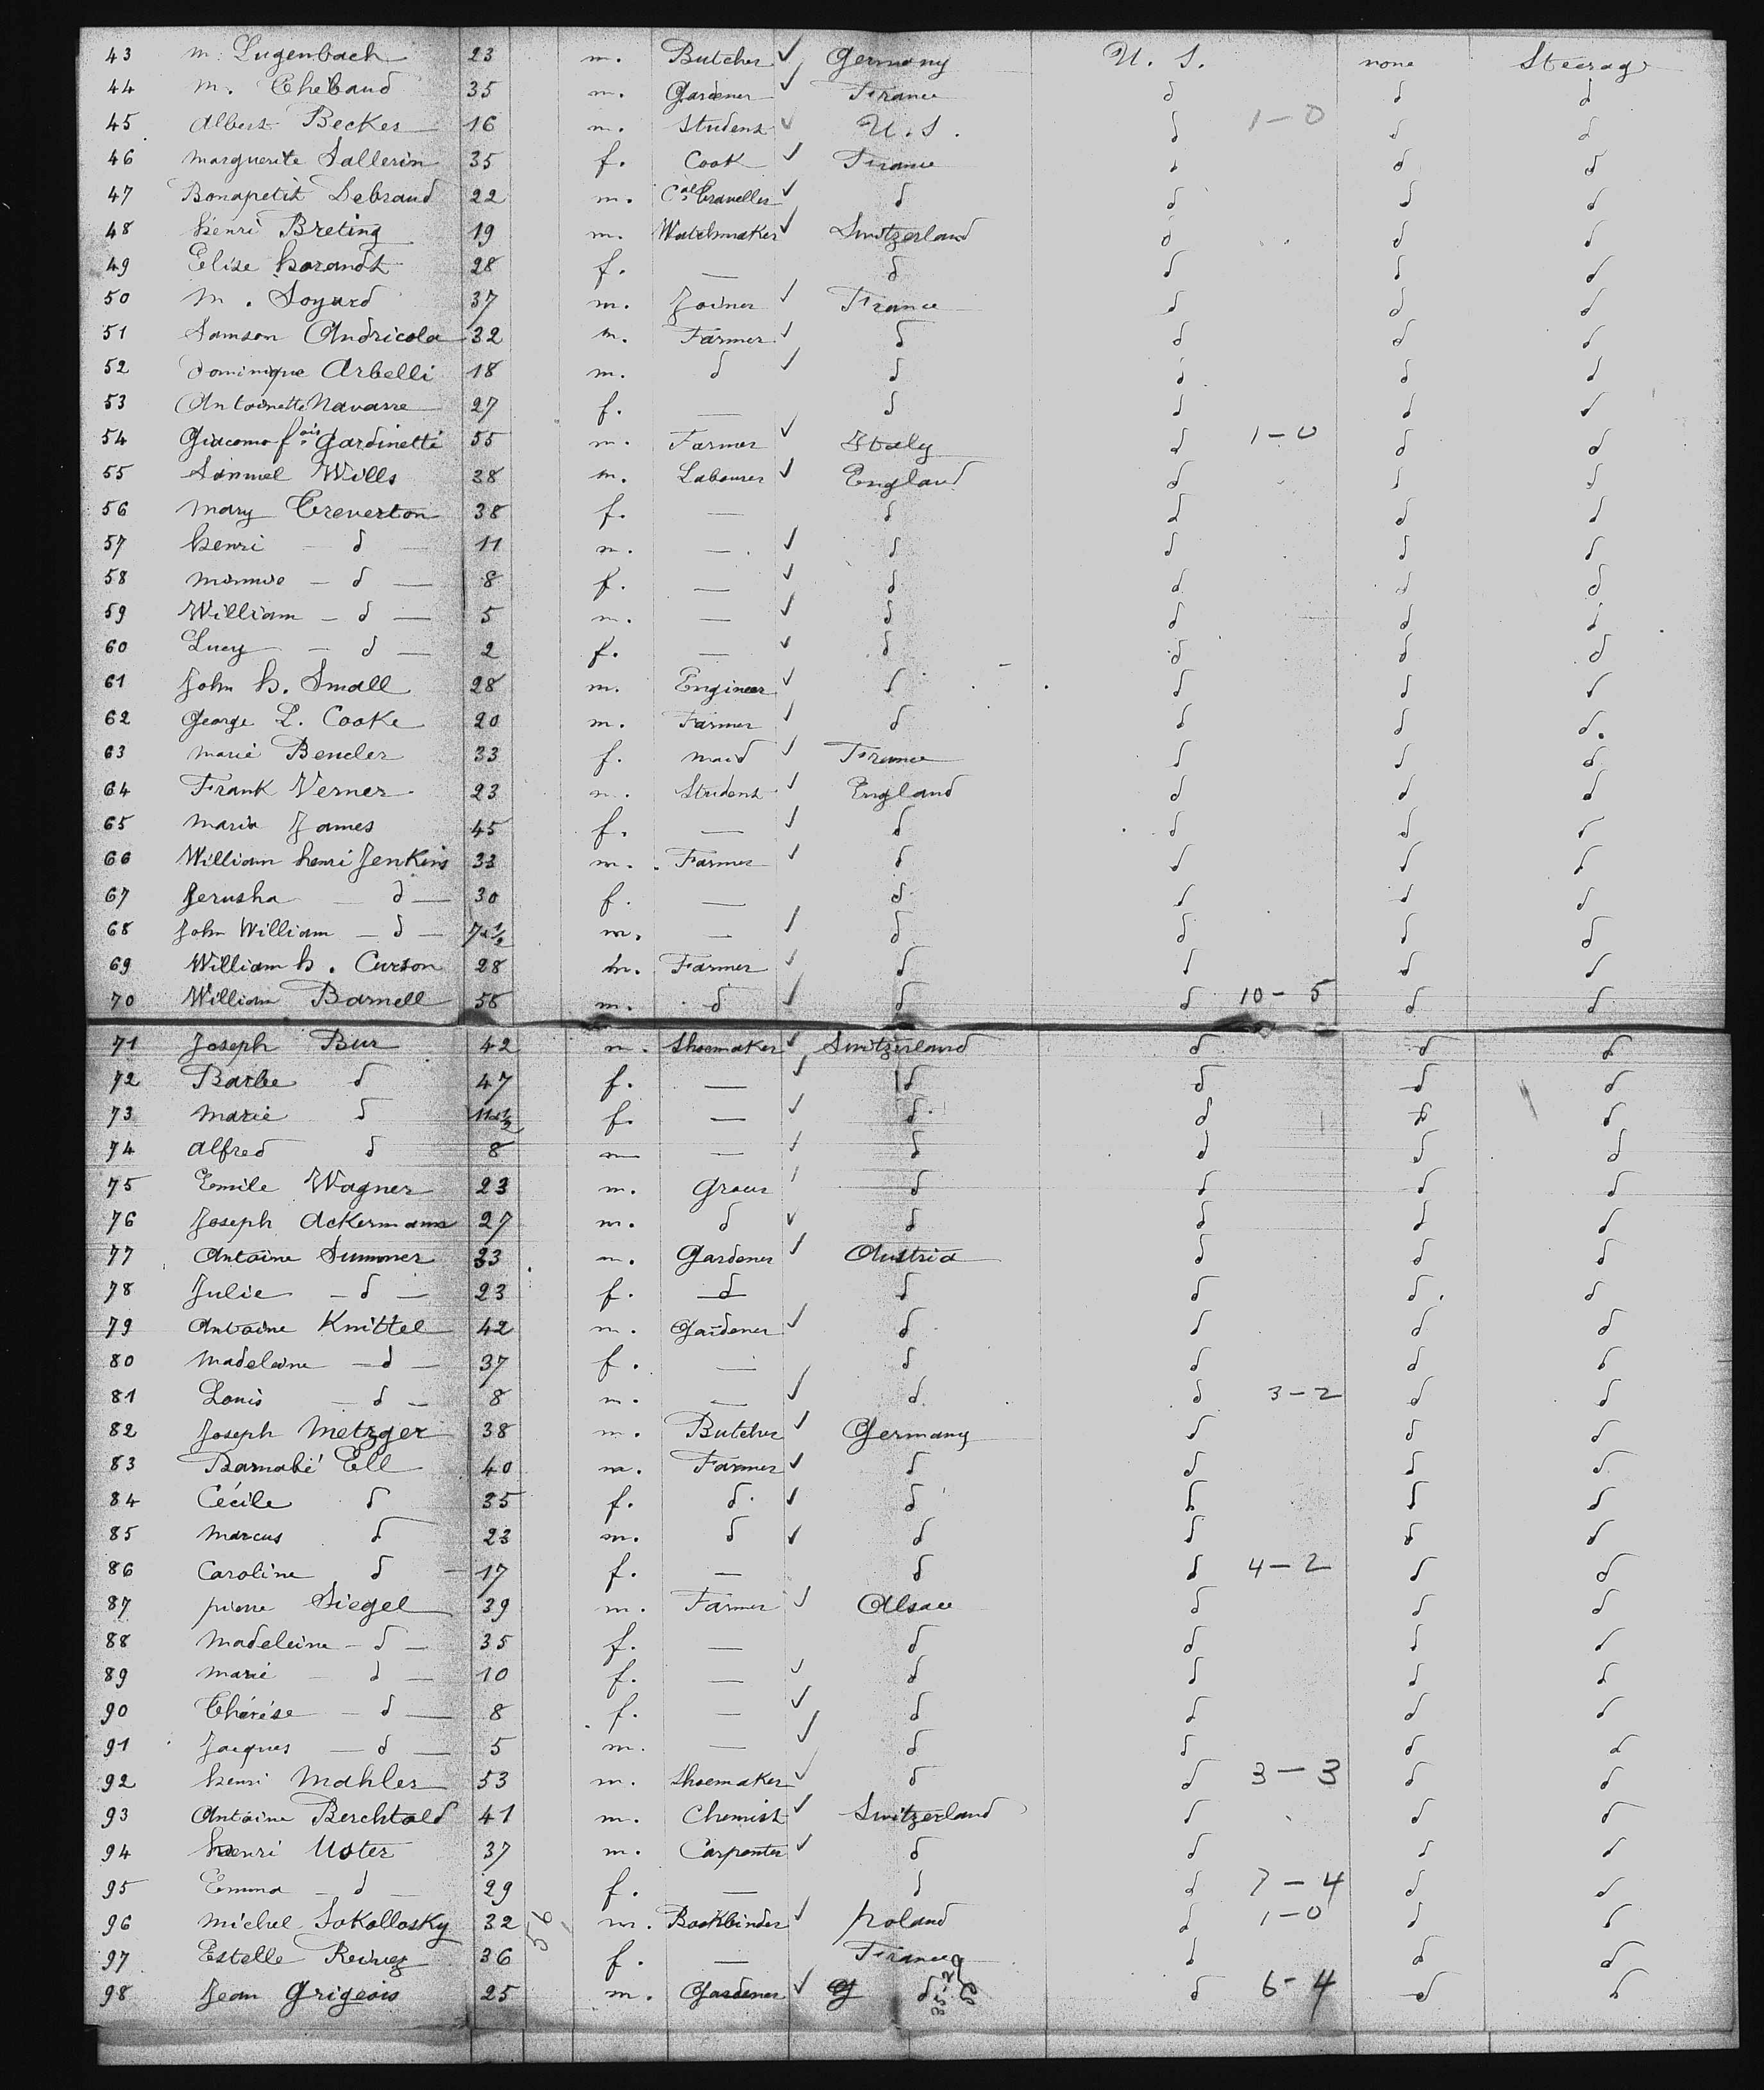 43 M. Lugenbach 23 m. Butcher ✓ Germany U. S. none Steerage
44 M. Thébaud 35 m. Gardener ✓ France d d d
45 Albert Becker 16 m. Student ✓ U. S. d 1-0 d d
46 Marguerite Sallerin 35 f. Cook ✓ France d d d
47 Bonapetit Lebraud 22 m. Cal Traveller ✓ d d d d
48 Henri Breting 19 m. Watchmaker ✓ Switzerland d d d
49 Elise Horandt 28 f. — d d d d
50 M. Soyard 37 m. Joiner ✓ France d d d
51 Samson Andricola 32 m. Farmer ✓ d d d d
52 Dominique Arbelli 18 m. d ✓ d d d d
53 Antoinette Navarre 27 f. — d d d d
54 Giacomo fois Gardinetti 55 m. Farmer ✓ Italy d 1-0 d d
55 Samuel Wills 38 m. Labourer ✓ England d d d
56 Mary Treverton 38 f. — d d d d
57 Henri — d — 11 m. — ✓ d d d d
58 Minnie — d — 8 f. — ✓ d d d d
59 William — d — 5 m. — ✓ d d d d
60 Lucy — d — 2 f. — ✓ d d d d
61 John H. Small 28 m. Engineer ✓ d d d d
62 George L. Cooke 20 m. Farmer ✓ d d d d
63 Marie Bender 33 f. maid ✓ France d d d
64 Frank Verner 23 m. Student ✓ England d d d
65 Maria James 45 f. — ✓ d d d d
66 William Henri Jenkins 33 m. Farmer ✓ d d d d
67 Jerusha — d — 30 f. — d d d d
68 John William — d — 7 1/2 m. — ✓ d d d d
69 William H. Curson 28 m. Farmer ✓ d d d d
70 William Barnell 58 m. d ✓ d d 10-5 d d
71 Joseph Bur 42 m. Shoemaker ✓ Switzerland d d d
72 Barbe d 47 f. — ✓ d d d d
73 Marie d 11 1/2 f. — ✓ d d d d
74 Alfred d 8 m — ✓ d d d d
75 Emile Wagner 23 m. Grocer ✓ d d d d
76 Joseph Ackermann 27 m. d ✓ d d d d
77 Antoine Summer 33 m. Gardener ✓ Austria d d d
78 Julie — d — 23 f. d d d d d
79 Antoine Knittel 42 m. Gardener ✓ d d d d
80 Madeleine — d — 37 f. — d d d d
81 Louis — d — 8 m. — ✓ d d 3-2 d d
82 Joseph Metzger 38 m. Butcher ✓ Germany d d d
83 Barnabé Ell 40 m. Farmer ✓ d d d d
84 Cécile d 35 f. d ✓ d d d d
85 Marcus d 23 m. d ✓ d d d d
86 Caroline d 17 f. — d d 4-2 d d
87 pierre Siegel 39 m. Farmer ✓ Alsace d d d
88 Madeleine — d — 35 f. — d d d d
89 Marie — d — 10 f. — ✓ d d d d
90 Thérése — d — 8 f. — ✓ d d d d
91 Jacques — d — 5 m. — ✓ d d d d
92 Henri Mahler 53 m. Shoemaker ✓ d d 3-3 d d
93 Antoine Berchtold 41 m. Chemist ✓ Switzerland d d d
94 Henri Uster 37 m. Carpenter ✓ d d d d
95 Emma — d — 29 f. — d d 7-4 d d
96 Michel Sokollosky 32 56 m. Bookbinder ✓ poland d 1-0 d d
97 Estelle 36 f. — France d d d
98 Jean Grigeois 25 m. Gardener ✓ d d 6-4 d d